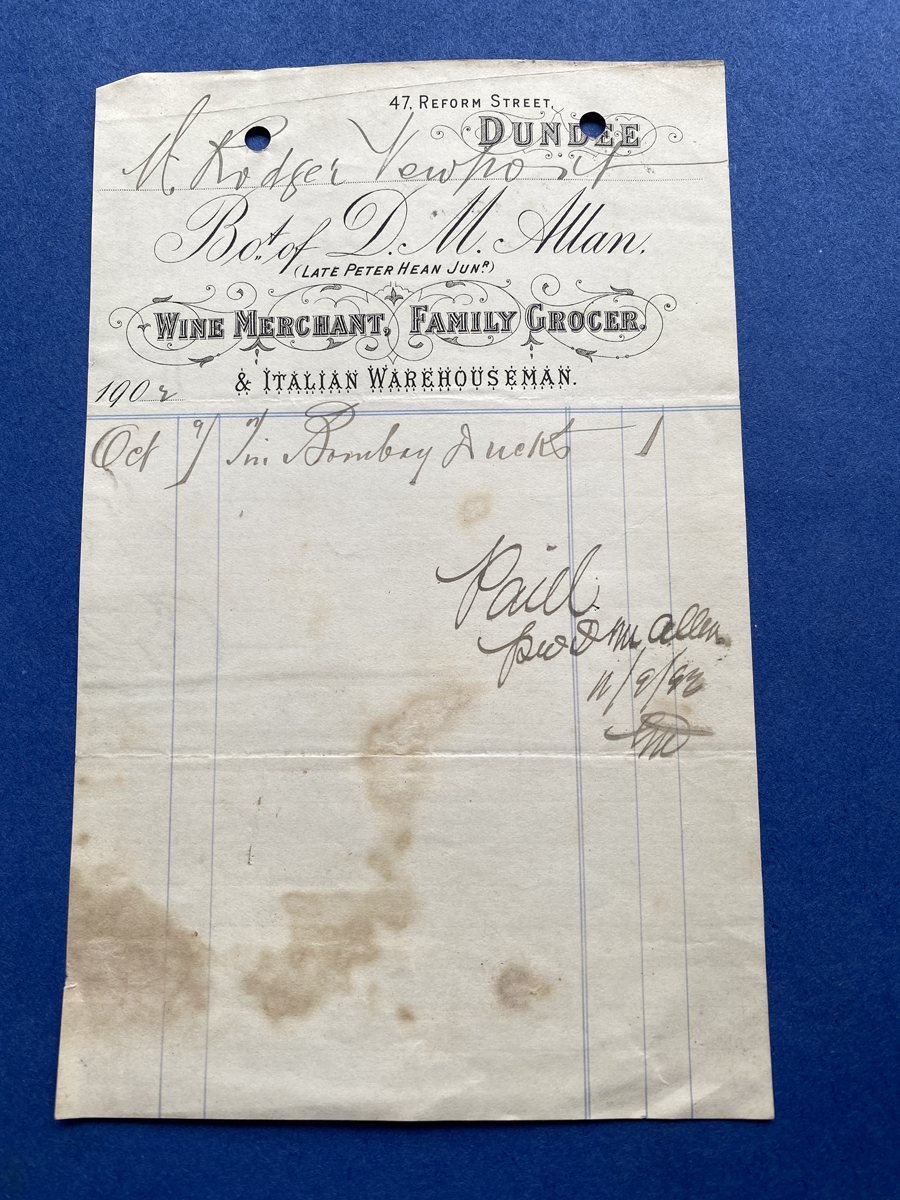 47, REFORM STREET,
DUNDEE
M. Rodger Newport
Bot. of D. M. Allan.
(LATE PETER HEAN JUNR)
WINE MERCHANT, FAMILY GROCER.
& ITALIAN WAREHOUSEMAN.
1902
Oct 9 Tin Bombay Ducks 1
Paid
pro D M Allan